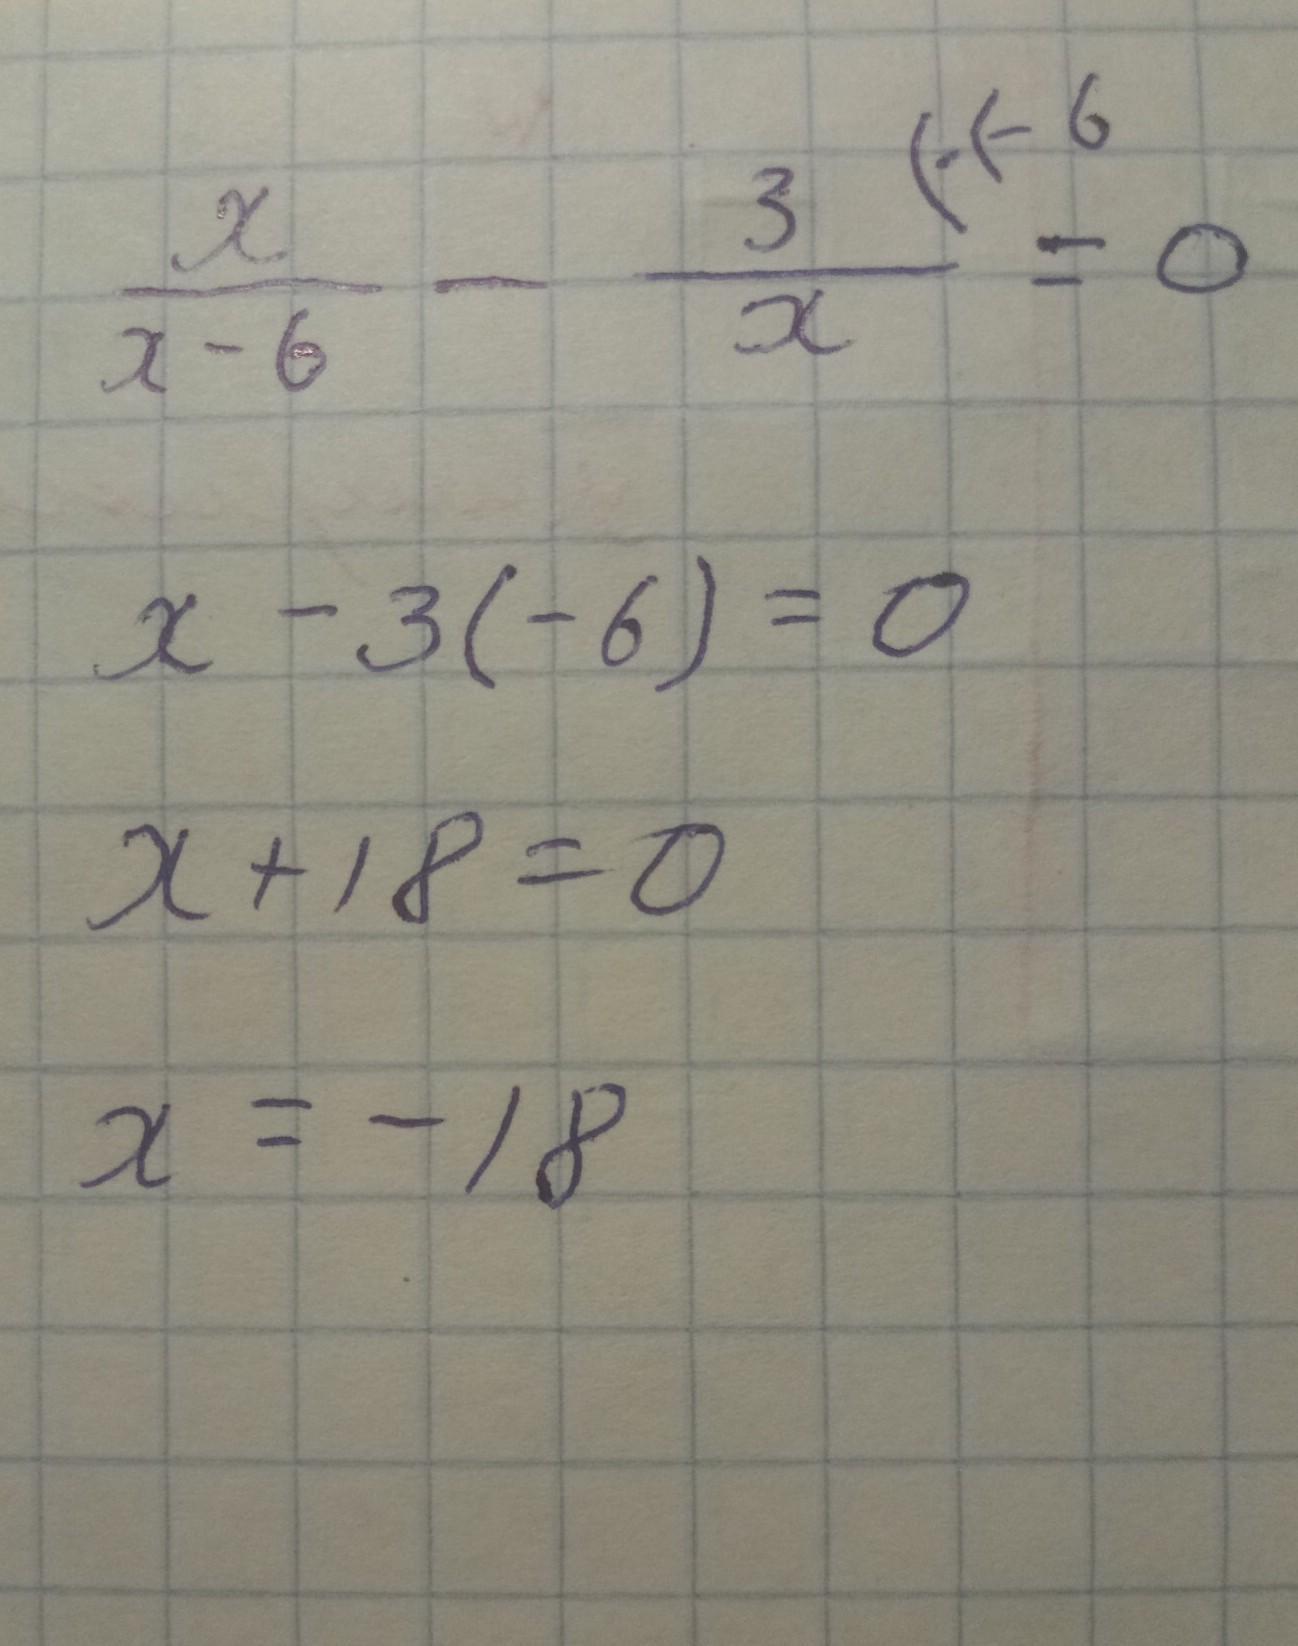 x/(x-6) - 3/x (·(-6 = 0
x - 3(-6) = 0
x + 18 = 0
x = -18